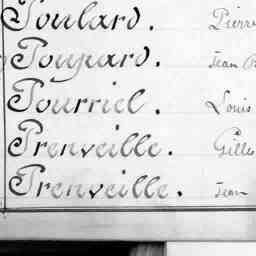 Poulard. Pierre
Poupard. Jean
Pourriel. Louis
Prenveille. Gilles
Prenveille. Jean